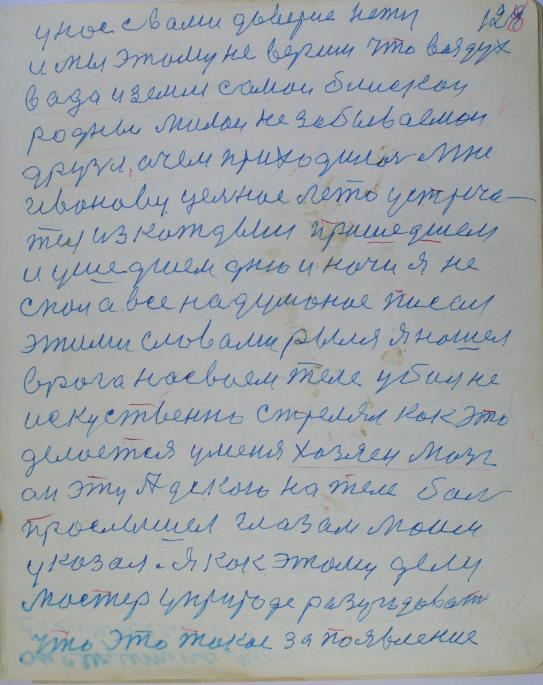 у нас с вами доверие нету 128
и мы этому не верим что воздух
вада и земля самои блискои
родныи милои не забываемои
друзья, а чем приходилос мне
Иванову целное лето устреча
тся из каждым пришедшем
и ушедшем дню и ночи я не
спал а все надуманое писал
этими словами рылся я нашел
врага на своем теле убил не
искуственно стрелял как это
делается у меня хозяен мозг
он эту Адскою на теле бол
прослышел глазам моим
указал. я как этому делу
мастер у природе разугадоват
что это такое за появление